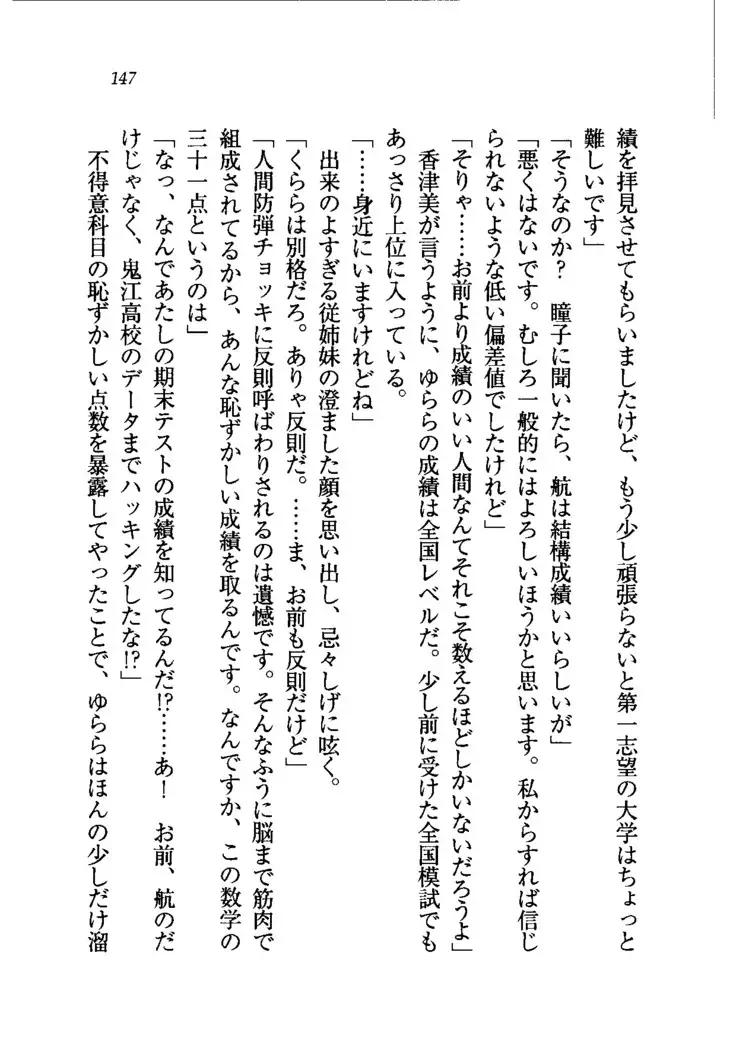 147
績を拝見させてもらいましたけど、もう少し頑張らないと第一志望の大学はちょっと
難しいです」
「そうなのか？　瞳子に聞いたら、航は結構成績いいらしいが」
「悪くはないです。むしろ一般的にはよろしいほうかと思います。私からすれば信じ
られないような低い偏差値でしたけれど」
「そりゃ……お前より成績のいい人間なんてそれこそ数えるほどしかいないだろうよ」
香津美が言うように、ゆららの成績は全国レベルだ。少し前に受けた全国模試でも
あっさり上位に入っている。
「……身近にいますけれどね」
出来のよすぎる従姉妹の澄ました顔を思い出し、忌々しげに呟く。
「くららは別格だろ。ありゃ反則だ。……ま、お前も反則だけど」
「人間防弾チョッキに反則呼ばわりされるのは遺憾です。そんなふうに脳まで筋肉で
組成されてるから、あんな恥ずかしい成績を取るんです。なんですか、この数学の
三十一点というのは」
「なっ、なんであたしの期末テストの成績を知ってるんだ!?……あ！　お前、航のだ
けじゃなく、鬼江高校のデータまでハッキングしたな!?」
不得意科目の恥ずかしい点数を暴露してやったことで、ゆららはほんの少しだけ溜